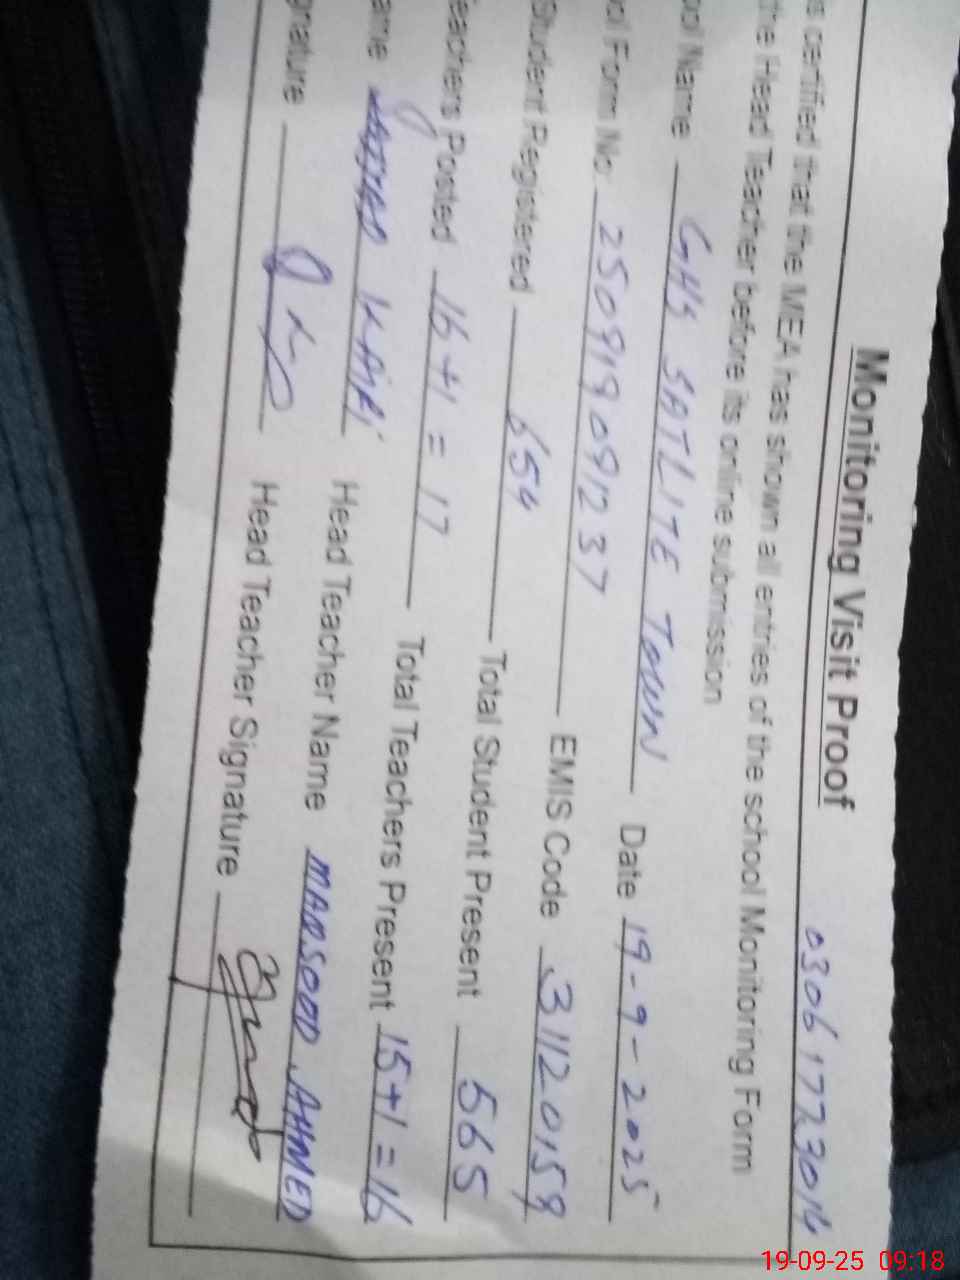 Monitoring Visit Proof 03061773014
s certified that the MEA has shown all entries of the school Monitoring Form
the Head Teacher before its online submission
ool Name GHS SATLITE TOWN Date 19-9-2025
ol Form No 250919091237 EMIS Code 31120159
Student Registered 654 Total Student Present 565
eachers Posted 16+1=17 Total Teachers Present 15+1=16
ame Head Teacher Name MAQSOOD AHMED
gnature Head Teacher Signature
19-09-25 09:18